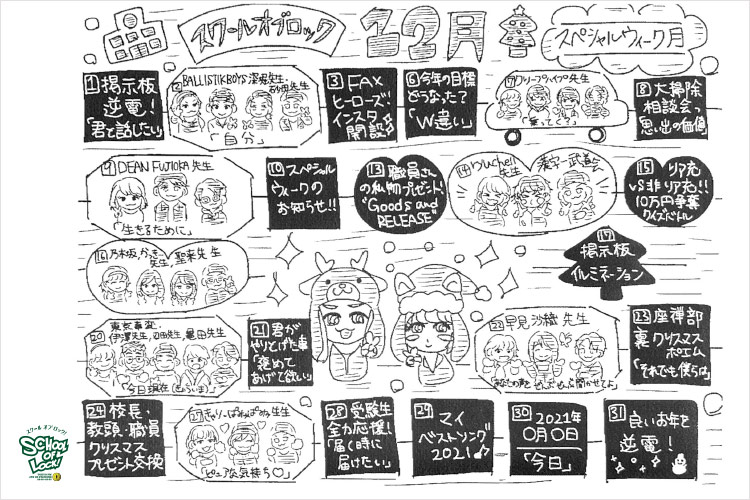 スクールオブロック
12月
スペシャルウィーク月
1 掲示板
逆電!
「君と話したい」
2 BALLISTIKBOYS 深堀先生・
砂田先生
「自分」
3 FAX
ヒーローズ!
インスタ
開設!!
6 今年の目標
どうなった?
「W違い」
7 クリープハイプ先生
「乗ってく?」
8 大掃除
相談会っ
「思い出の価値」
9 DEAN FUJIOKA 先生
「生きるために」
10 スペシャル
ウィークの
お知らせ!!
13 職員さん
の私物プレゼント!
"Goods and
RELEASE"
14 りりあ
先生
漢字一武道会
15 リア充
VS非リア充!!
10万円争奪
クイズバトル
16 乃木坂、かっきー
先生、聖来先生
17
掲示板
イルミネーション
20
東京事変、
伊澤先生、刃田先生、亀田先生
「今日現在」
21 君が
やりとげた事
「褒めて
あげて欲しい」
22 早見沙織先生
23 座禅部
裏クリスマス
ポエム
「それでも僕らは」
24 校長、
教頭、職員
クリスマス
プレゼント交換
27 きゃりーぱみゅぱみゅ先生
「ピュアな気持ち♡」
28 受験生
全力応援!
「届く時に
届けたい」
29
マイ
ベストソング
2021
30
2021年
〇月〇日
「今日」
31
良いお年を
逆電!
スクール オブ ロック!
SCHOOL
OF
LOCK!